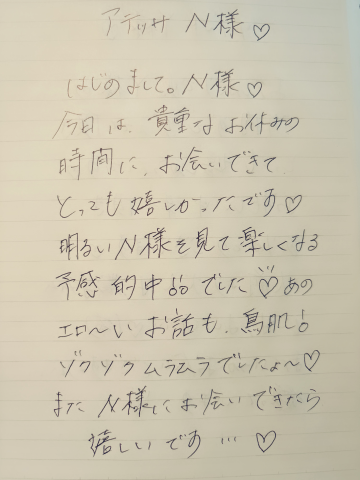 アテッサ N様♡
はじめまして。N様♡
今日は、貴重なお休みの
時間に、お会いできて
とっても嬉しかったです♡
明るいN様を見て楽しくなる
予感的中!!でした♡あの
エロ〜いお話も、鳥肌!
ゾクゾクムラムラでしたよ〜♡
またN様にお会いできたら
嬉しいです…♡